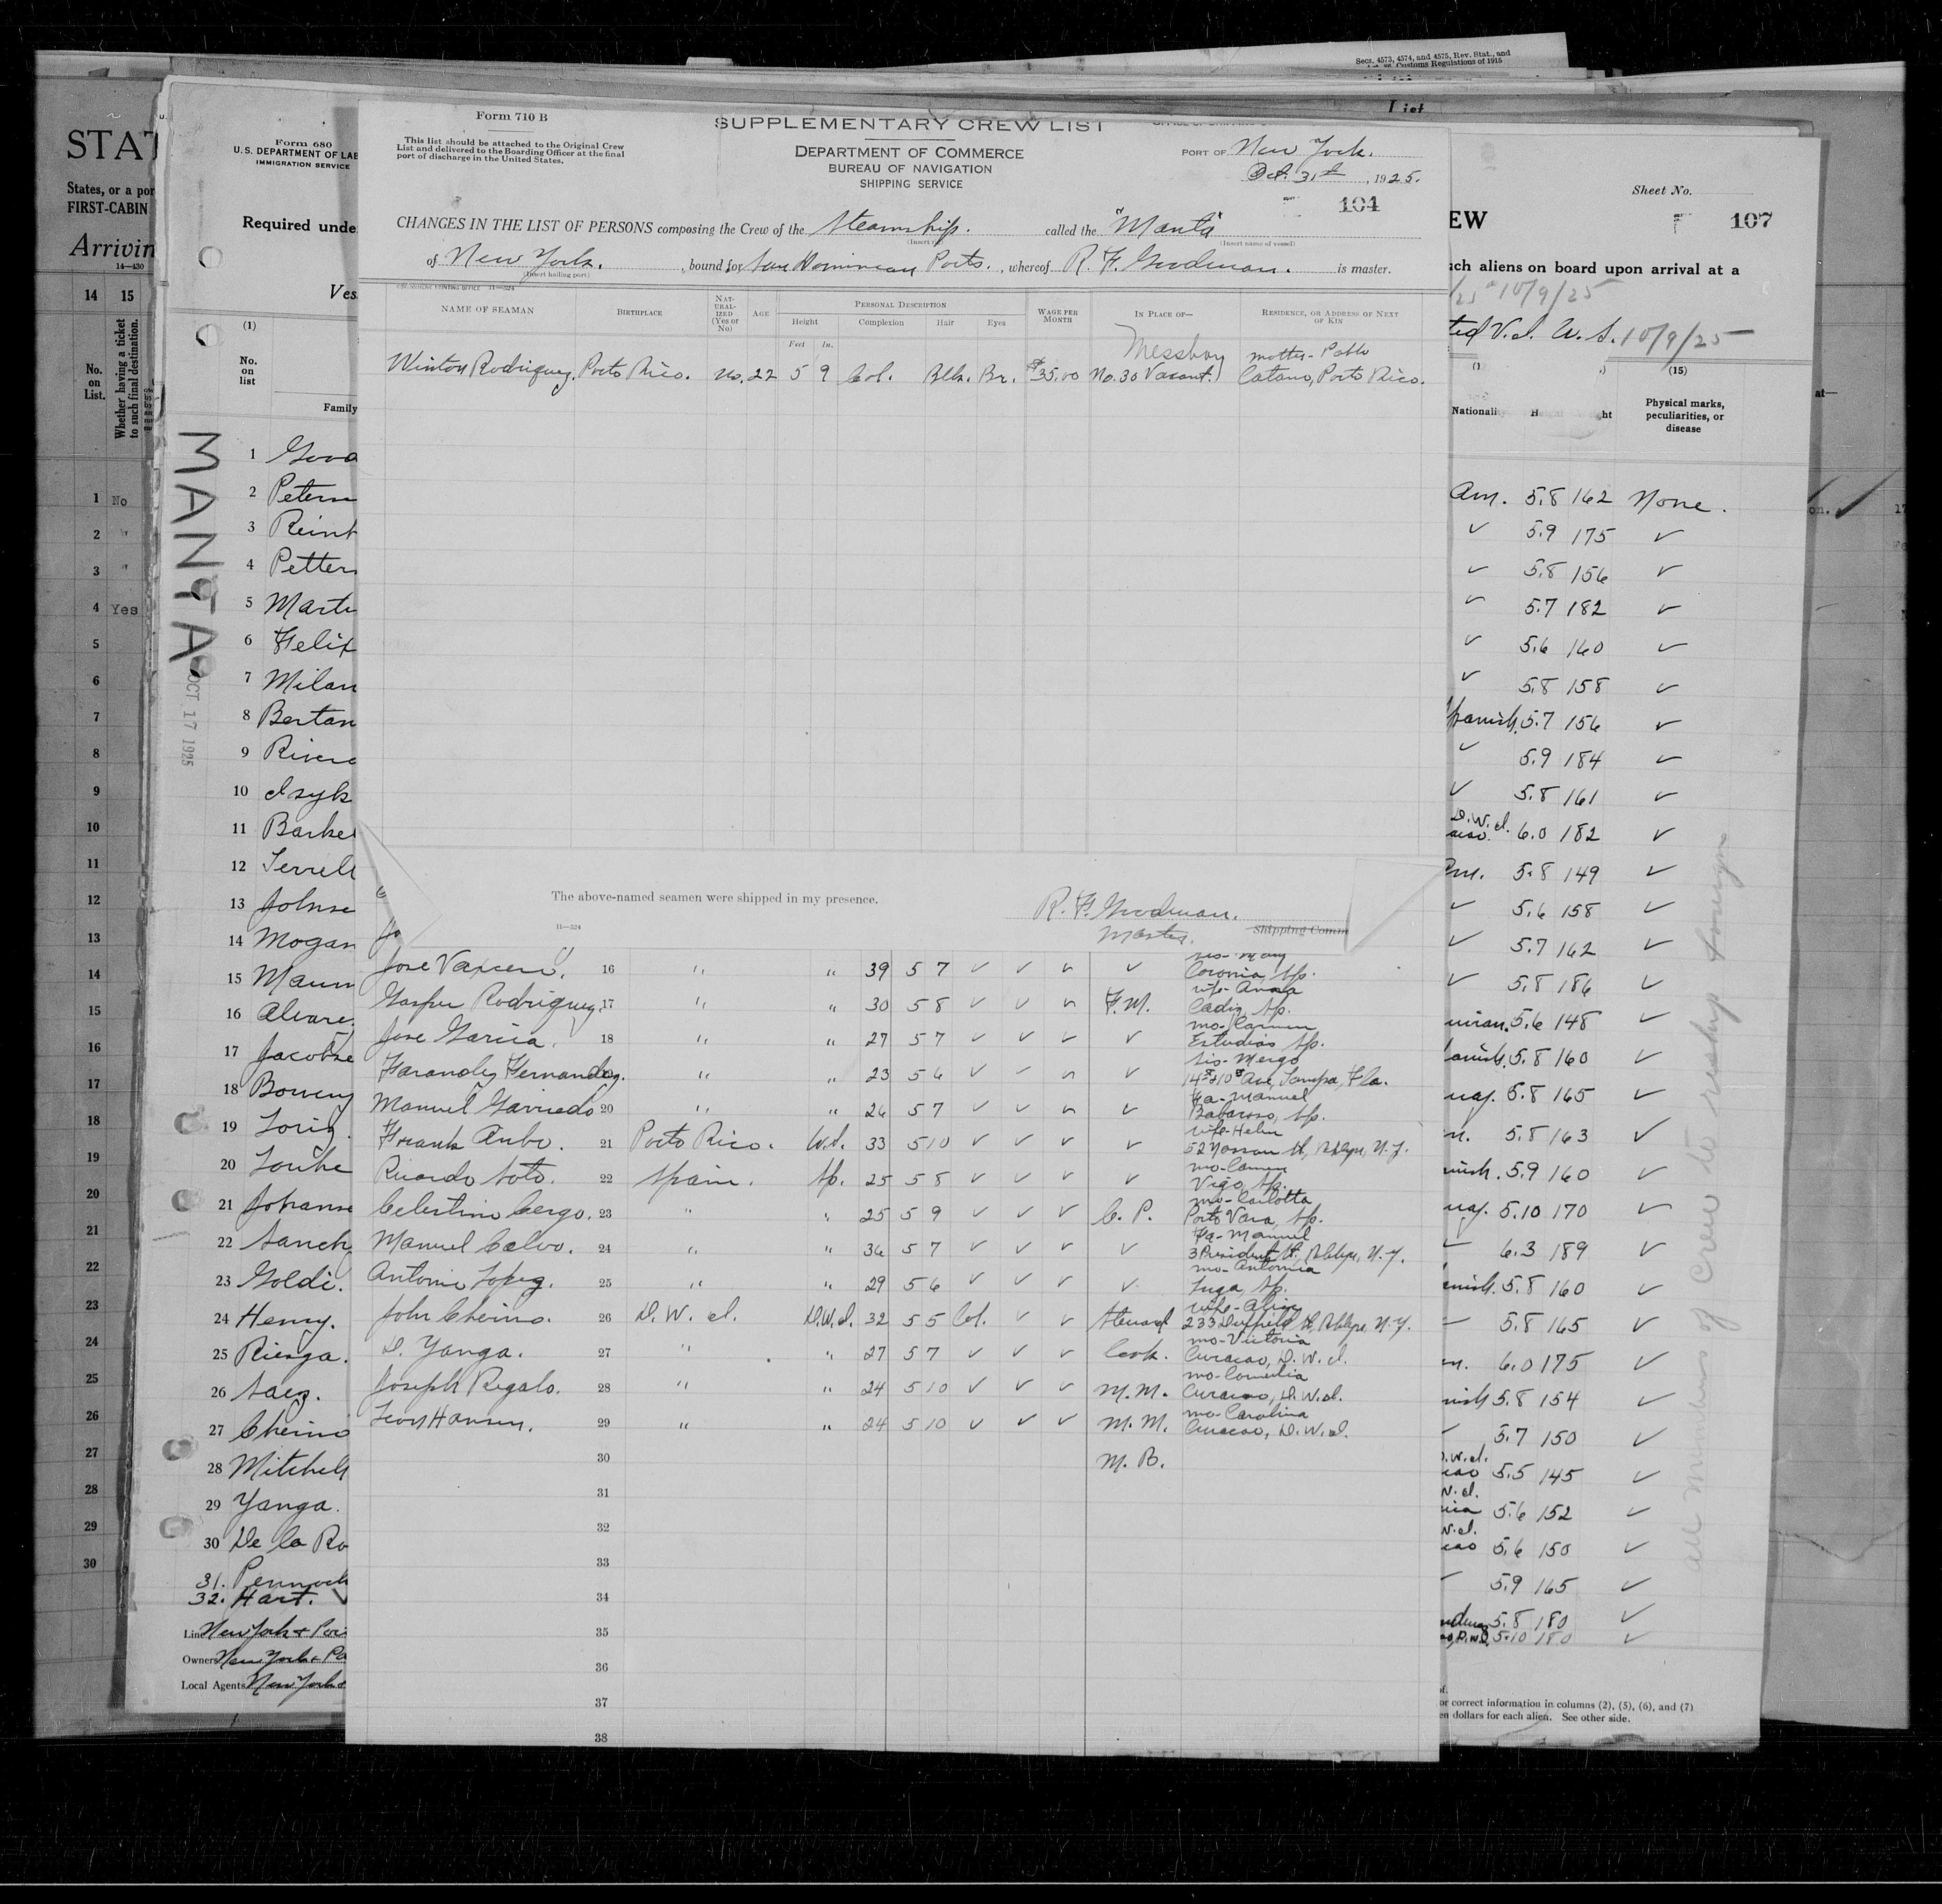 Secs. 4573, 4574, and 4575, Rev. Stat., and
Customs Regulations of 1915
List
STAT
States, or a por
FIRST-CABIN
Arrivin
14—430
14 15
No. on List.
Whether having a ticket to such final destination.
1 No
2 "
3 "
4 Yes
5
6
7
8
9
10
11
12
13
14
15
16
17
18
19
20
21
22
23
24
25
26
27
28
29
30
Form 680
U.S. DEPARTMENT OF LAB
IMMIGRATION SERVICE
Required unde
Ves
(1)
No. on list
Family
MANTA
OCT 17 1925
1 Good
2 Peterse
3 Reinh
4 Petters
5 Marti
6 Felix
7 Milan
8 Bertan
9 Rivera
10 Isyk
11 Barke
12 Terrell
13 Johnse
14 Mogan
15 Maun
16 Alvare
17 Jacobse
18 Bowen
19 Lorig
20 Louhe
21 Johanse
22 Sanch
23 Goldi
24 Henry.
25 Riesga.
26 Saez.
27 Cherino
28 Mitchell
29 Yanga.
30 De la Ro
31. Pennock
32. Hart.
Line New York + Por
Owners New York + Po
Local Agents New York +
Form 710 B
This list should be attached to the Original Crew
List and delivered to the Boarding Officer at the final
port of discharge in the United States.
SUPPLEMENTARY CREW LIST
DEPARTMENT OF COMMERCE
BUREAU OF NAVIGATION
SHIPPING SERVICE
PORT OF New York.
Oct. 31st, 1925.
104
CHANGES IN THE LIST OF PERSONS composing the Crew of the Steamship. called the "Manta"
(Insert name of vessel)
of New York. , bound for San Dominican Ports. , whereof R. F. Goodman. is master.
(Insert hailing port)
NAME OF SEAMAN BIRTHPLACE NATURALIZED (Yes or No) AGE PERSONAL DESCRIPTION WAGE PER MONTH IN PLACE OF— RESIDENCE, OR ADDRESS OF NEXT OF KIN
Height Complexion Hair Eyes
Feet In.
Messboy mother- Pablo
Winton Rodriguez. Porto Rico. No. 22 5 9 Col. Blk. Br. $35.00 No. 30 Vacant. Catano, Porto Rico.
The above-named seamen were shipped in my presence.
R. F. Goodman.
Master. Shipping Comm
11—524
Jose 16 " " 39 5 7 ✓ ✓ ✓ ✓ Coronia, Sp.
wife- Anna
Gasper Rodriguez. 17 " " 30 5 8 ✓ ✓ ✓ F.M. Cadiz, Sp.
mo- Carmen
Jose Garcia. 18 " " 27 5 7 ✓ ✓ ✓ ✓ Estudias Sp.
sis- Mergo
Farandez Fernandez. " " 23 5 6 ✓ ✓ ✓ ✓ 14th + 10th Ave, Tampa, Fla.
Fa- Manuel
Manuel Garriedo 20 " " 26 5 7 ✓ ✓ ✓ ✓ Sp.
wife- Helen
Frank Aubo. 21 Porto Rico. U.S. 33 5 10 ✓ ✓ ✓ 52 Nassau St, Bklyn, N.Y.
mo- Carmen
Ricardo Soto. 22 Spain. Sp. 25 5 8 ✓ ✓ ✓ ✓ Vigo, Sp.
mo- Carlotta
Celestino Cergo. 23 " " 25 5 9 ✓ ✓ ✓ C. P. Porto Vara, Sp.
Fa- Manuel
Manuel Calvo. 24 " " 36 5 7 ✓ ✓ ✓ ✓ 3 President St. Bklyn, N.Y.
mo- Antonia
Antonio Lopez. 25 " " 29 5 6 ✓ ✓ ✓ ✓ Luga, Sp.
wife- Alice
John Cherino. 26 D. W. I. D.W.I. 32 5 5 Col. ✓ ✓ Steward 233 Duffield St, Bklyn, N.Y.
mo- Victoria
D. Yanga. 27 " " 27 5 7 ✓ ✓ ✓ Cook. Curacao, D.W.I.
mo- Cornelia
Joseph Regals. 28 " " 24 5 10 ✓ ✓ ✓ M.M. Curacao, D.W.I.
mo- Carolina
Leon Hansen. 29 " " 24 5 10 ✓ ✓ ✓ M.M. Curacao, D.W.I.
30 M.B.
31
32
33
34
35
36
37
38
Sheet No.
EW
107
uch aliens on board upon arrival at a
10/9/25
ted V.I. U.S. 10/9/25
(15)
Nationali Height ght
Physical marks, peculiarities, or disease
at—
Am. 5.8 162 None.
✓ 5.9 175 ✓
✓ 5.8 156 ✓
✓ 5.7 182 ✓
✓ 5.6 160 ✓
✓ 5.8 158 ✓
Spanish. 5.7 156 ✓
✓ 5.9 184 ✓
✓ 5.8 161 ✓
D.W.I. 6.0 182 ✓
m. 5.8 149 ✓
✓ 5.6 158 ✓
✓ 5.7 162 ✓
✓ 5.8 186 ✓
5.6 148 ✓
anish. 5.8 160 ✓
uay. 5.8 165 ✓
m. 5.8 163 ✓
nish. 5.9 160 ✓
uay. 5.10 170 ✓
6.3 189 ✓
anish. 5.8 160 ✓
5.8 165 ✓
m. 6.0 175 ✓
nish 5.8 154 ✓
5.7 150 ✓
.W.I.
cao 5.5 145 ✓
W.I.
5.6 152 ✓
W.I.
cao 5.6 150 ✓
5.9 165 ✓
5.8 180 ✓
D.W.I. 5.10 180 ✓
All members of Crew to reship foreign
of.
or correct information in columns (2), (5), (6), and (7)
en dollars for each alien. See other side.